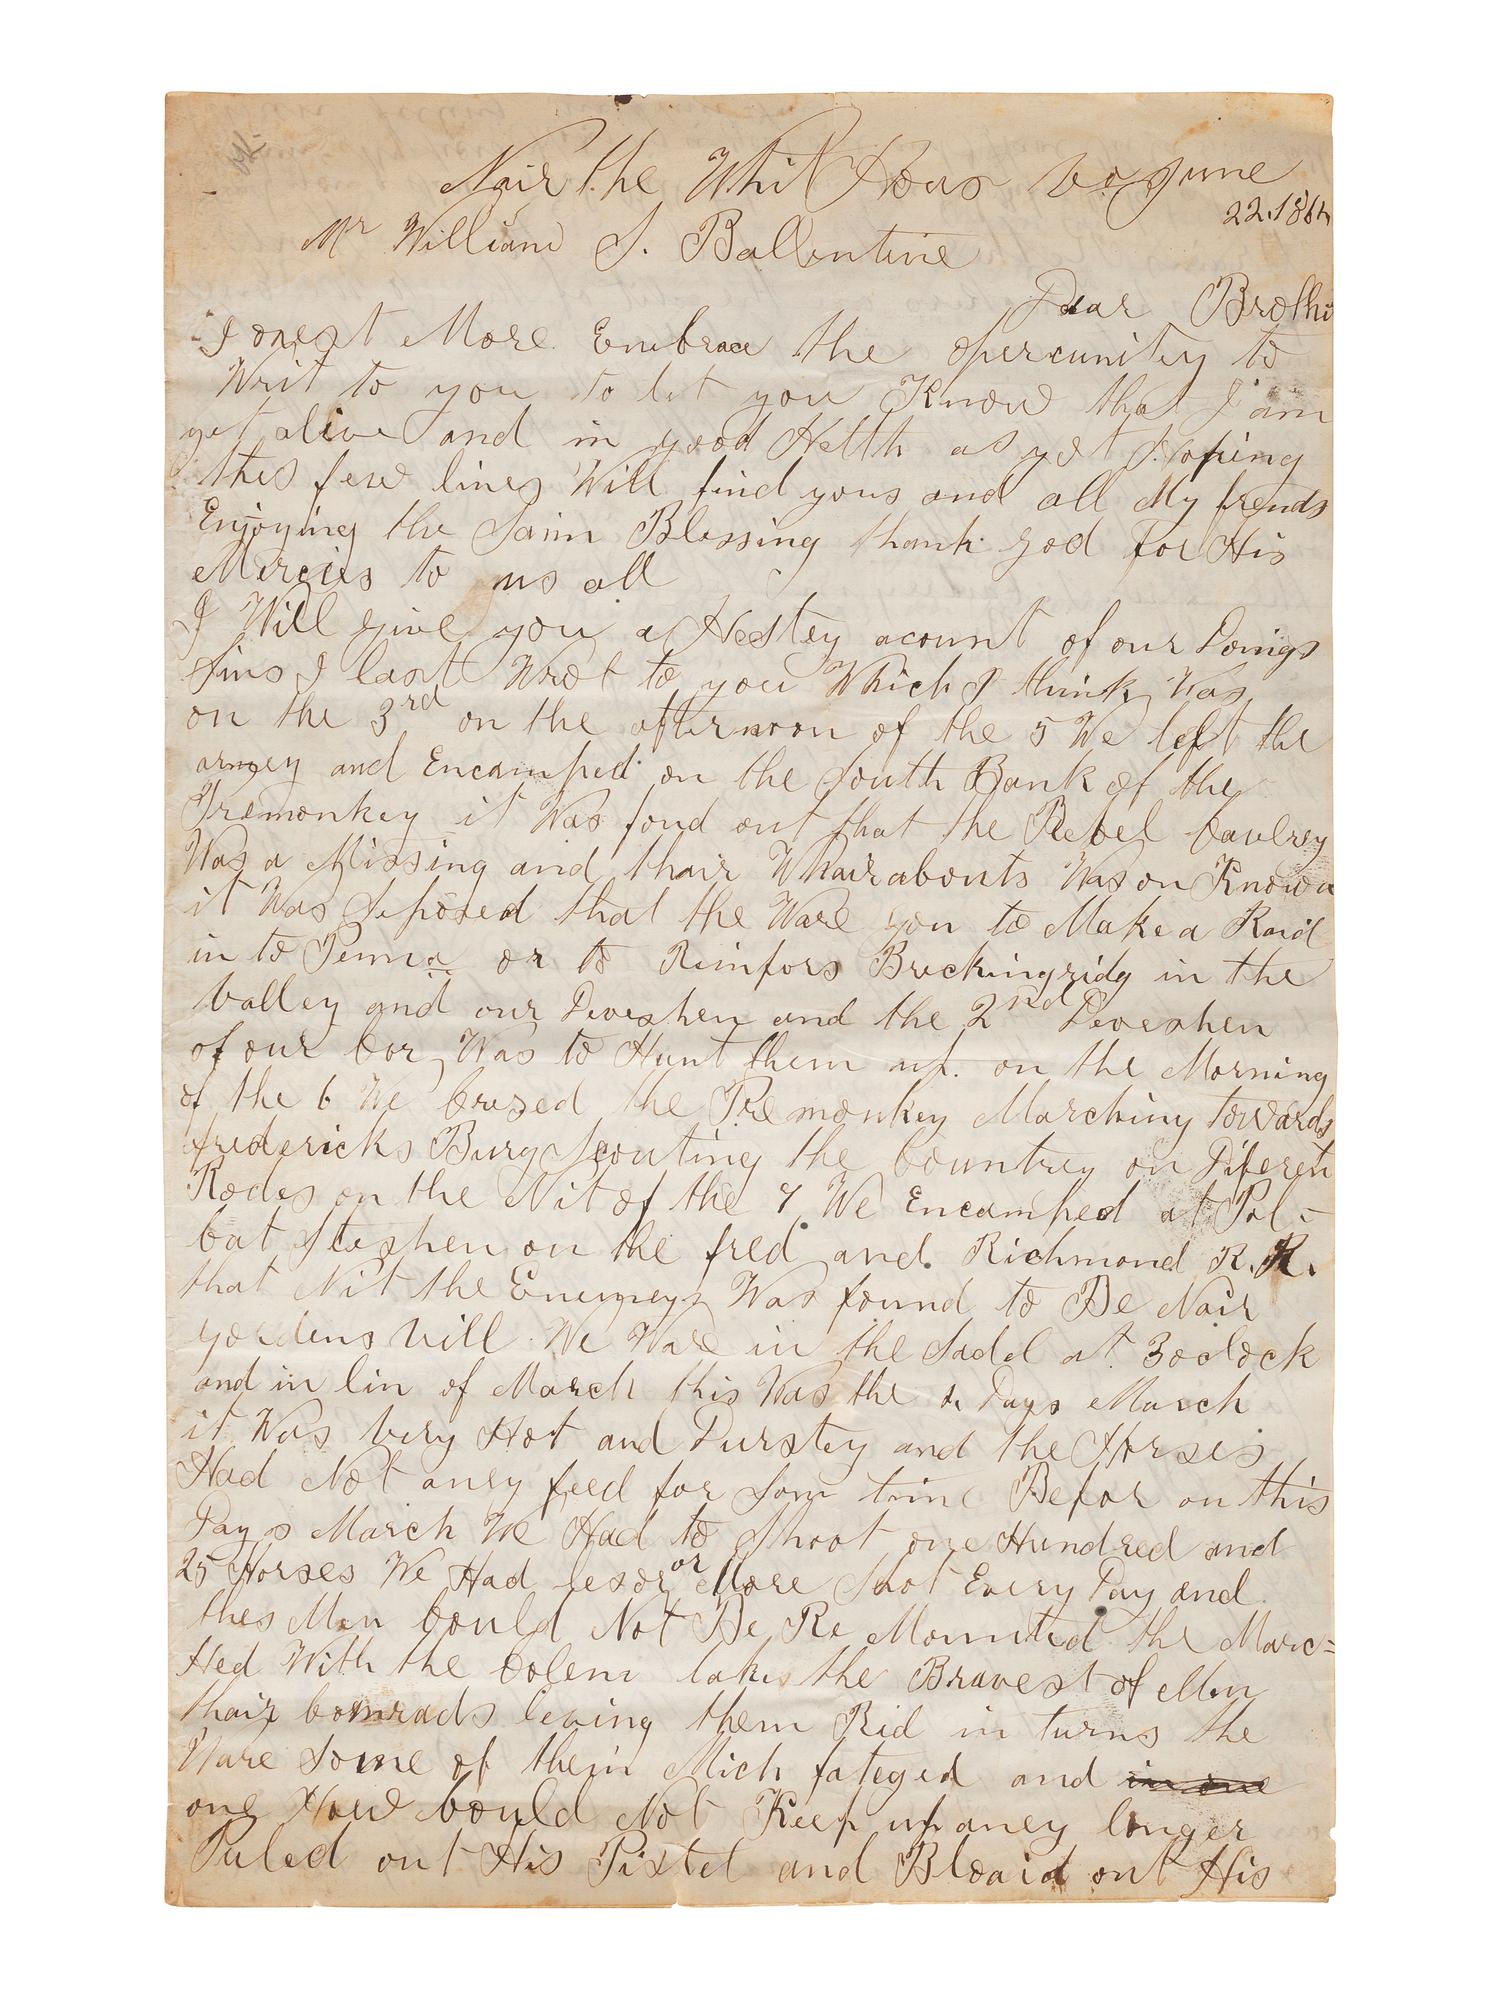 Nair the Whit Hous Va June
22. 1864
Mr William J. Ballentine
Dear Brothe
I onest More Embrace the opercunitey to
Writ to you to let you Know that I am
yet alive and in good Helth as yet Hoping
this few lines Will find yous and all My frends
Enjoying the Saim Blessing thank god For His
Mercies to us all
I Will give you a Hestey acount of our Doings
Sins I last Wrot to you Which I think Was
on the 3rd on the afternoon of the 5 We left the
armey and Encamped on the South Bank of the
Premonkey it Was fond out that the Rebel Cavlrey
Was a Missing and thair Whairabouts Was on Known
it Was Seposed that the Ware gon to Make a Raid
in to Penna or to Rinfors Breckingridg in the
Valley and our Deveshen and the 2nd Deveshen
of our Cor Was to Hunt them up. on the Morning
of the 6 We Crosed the Premonkey Marching towards
fredericks Burg Scouting the Countrey on Diferent
Rodes on the Nit of the 7 We Encamped at Pol-
cat Stashen on the fred and Richmond R. R.
that Nit the Enemeys Was found to Be Nair
gordens vill We Ware in the Sadel at 3 oclock
and in lin of March this Was the Days March
it Was Very Hot and Durstey and the Horses
Had Not aney feed for Som time Befor on this
Days March We Had to Shoot one Hundred and
25 Horses We Had lesor or More Shot Every Day and
thes Men Could Not Be Re Mounted the Marc=
Hed With the Colem like the Bravest of Men
thair Comrads leving them Rid in turns the
Ware Some of them Mich fateged and in one
one How Could Not Keep up aney longer
Puled out His Pistel and Bload out His